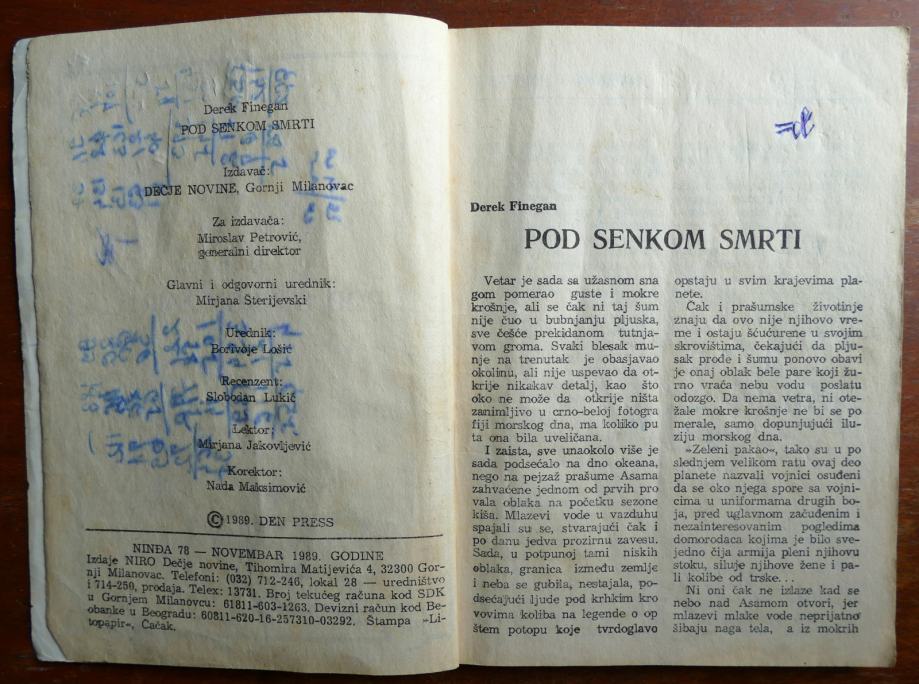 Derek Finegan
POD SENKOM SMRTI
Izdavač:
DEČJE NOVINE, Gornji Milanovac
Za izdavača:
Miroslav Petrović,
generalni direktor
Glavni i odgovorni urednik:
Mirjana Sterijevski
Urednik:
Borivoje Lošić
Recenzent:
Slobodan Lukić
Lektor:
Mirjana Jakovljević
Korektor:
Nada Maksimović
©1989. DEN PRESS
NINĐA 78 — NOVEMBAR 1989. GODINE
Izdaje NIRO Dečje novine, Tihomira Matijevića 4, 32300 Gor-
nji Milanovac. Telefoni: (032) 712-246, lokal 28 — uredništvo
i 714-250, prodaja. Telex: 13731. Broj tekućeg računa kod SDK
u Gornjem Milanovcu: 61811-603-1263. Devizni račun kod Be-
obanke u Beogradu: 60811-620-16-257310-03292. Štampa »Li-
topapir«, Čačak.
Derek Finegan
POD SENKOM SMRTI
Vetar je sada sa užasnom sna
gom pomerao guste i mokre
krošnje, ali se čak ni taj šum
nije čuo u bubnjanju pljuska,
sve češće prekidanom tutnja-
vom groma. Svaki blesak mu-
nje na trenutak je obasjavao
okolinu, ali nije uspevao da ot-
krije nikakav detalj, kao što
oko ne može da otkrije ništa
zanimljivo u crno-beloj fotogra
fiji morskog dna, ma koliko pu
ta ona bila uveličana.
I zaista, sve unaokolo više je
sada podsećalo na dno okeana,
nego na pejzaž prašume Asama
zahvaćene jednom od prvih pro
vala oblaka na početku sezone
kiša. Mlazevi vode u vazduhu
spajali su se, stvarajući čak i
po danu jedva prozirnu zavesu.
Sada, u potpunoj tami niskih
oblaka, granica između zemlje
i neba se gubila, nestajala, po-
dsećajući ljude pod krhkim kro
vovima koliba na legende o op
štem potopu koje tvrdoglavo
opstaju u svim krajevima pla-
nete.
Čak i prašumske životinje
znaju da ovo nije njihovo vre-
me i ostaju šćućurene u svojim
skrovištima, čekajući da plju-
sak prođe i šumu ponovo obavi
je onaj oblak bele pare koji žu-
rno vraća nebu vodu poslatu
odozgo. Da nema vetra, ni ote-
žale mokre krošnje ne bi se po
merale, samo dopunjujući ilu-
ziju morskog dna.
»Zeleni pakao«, tako su u po
slednjem velikom ratu ovaj deo
planete nazvali vojnici osuđeni
da se oko njega spore sa vojni-
cima u uniformama drugih bo-
ja, pred uglavnom začuđenim i
nezainteresovanim pogledima
domorodaca kojima je bilo sve-
jedno čija armija pleni njihovu
stoku, siluje njihove žene i pa-
li kolibe od trske...
Ni oni čak ne izlaze kad se
nebo nad Asamom otvori, jer
mlazevi mlake vode neprijatno
šibaju naga tela, a iz mokrih